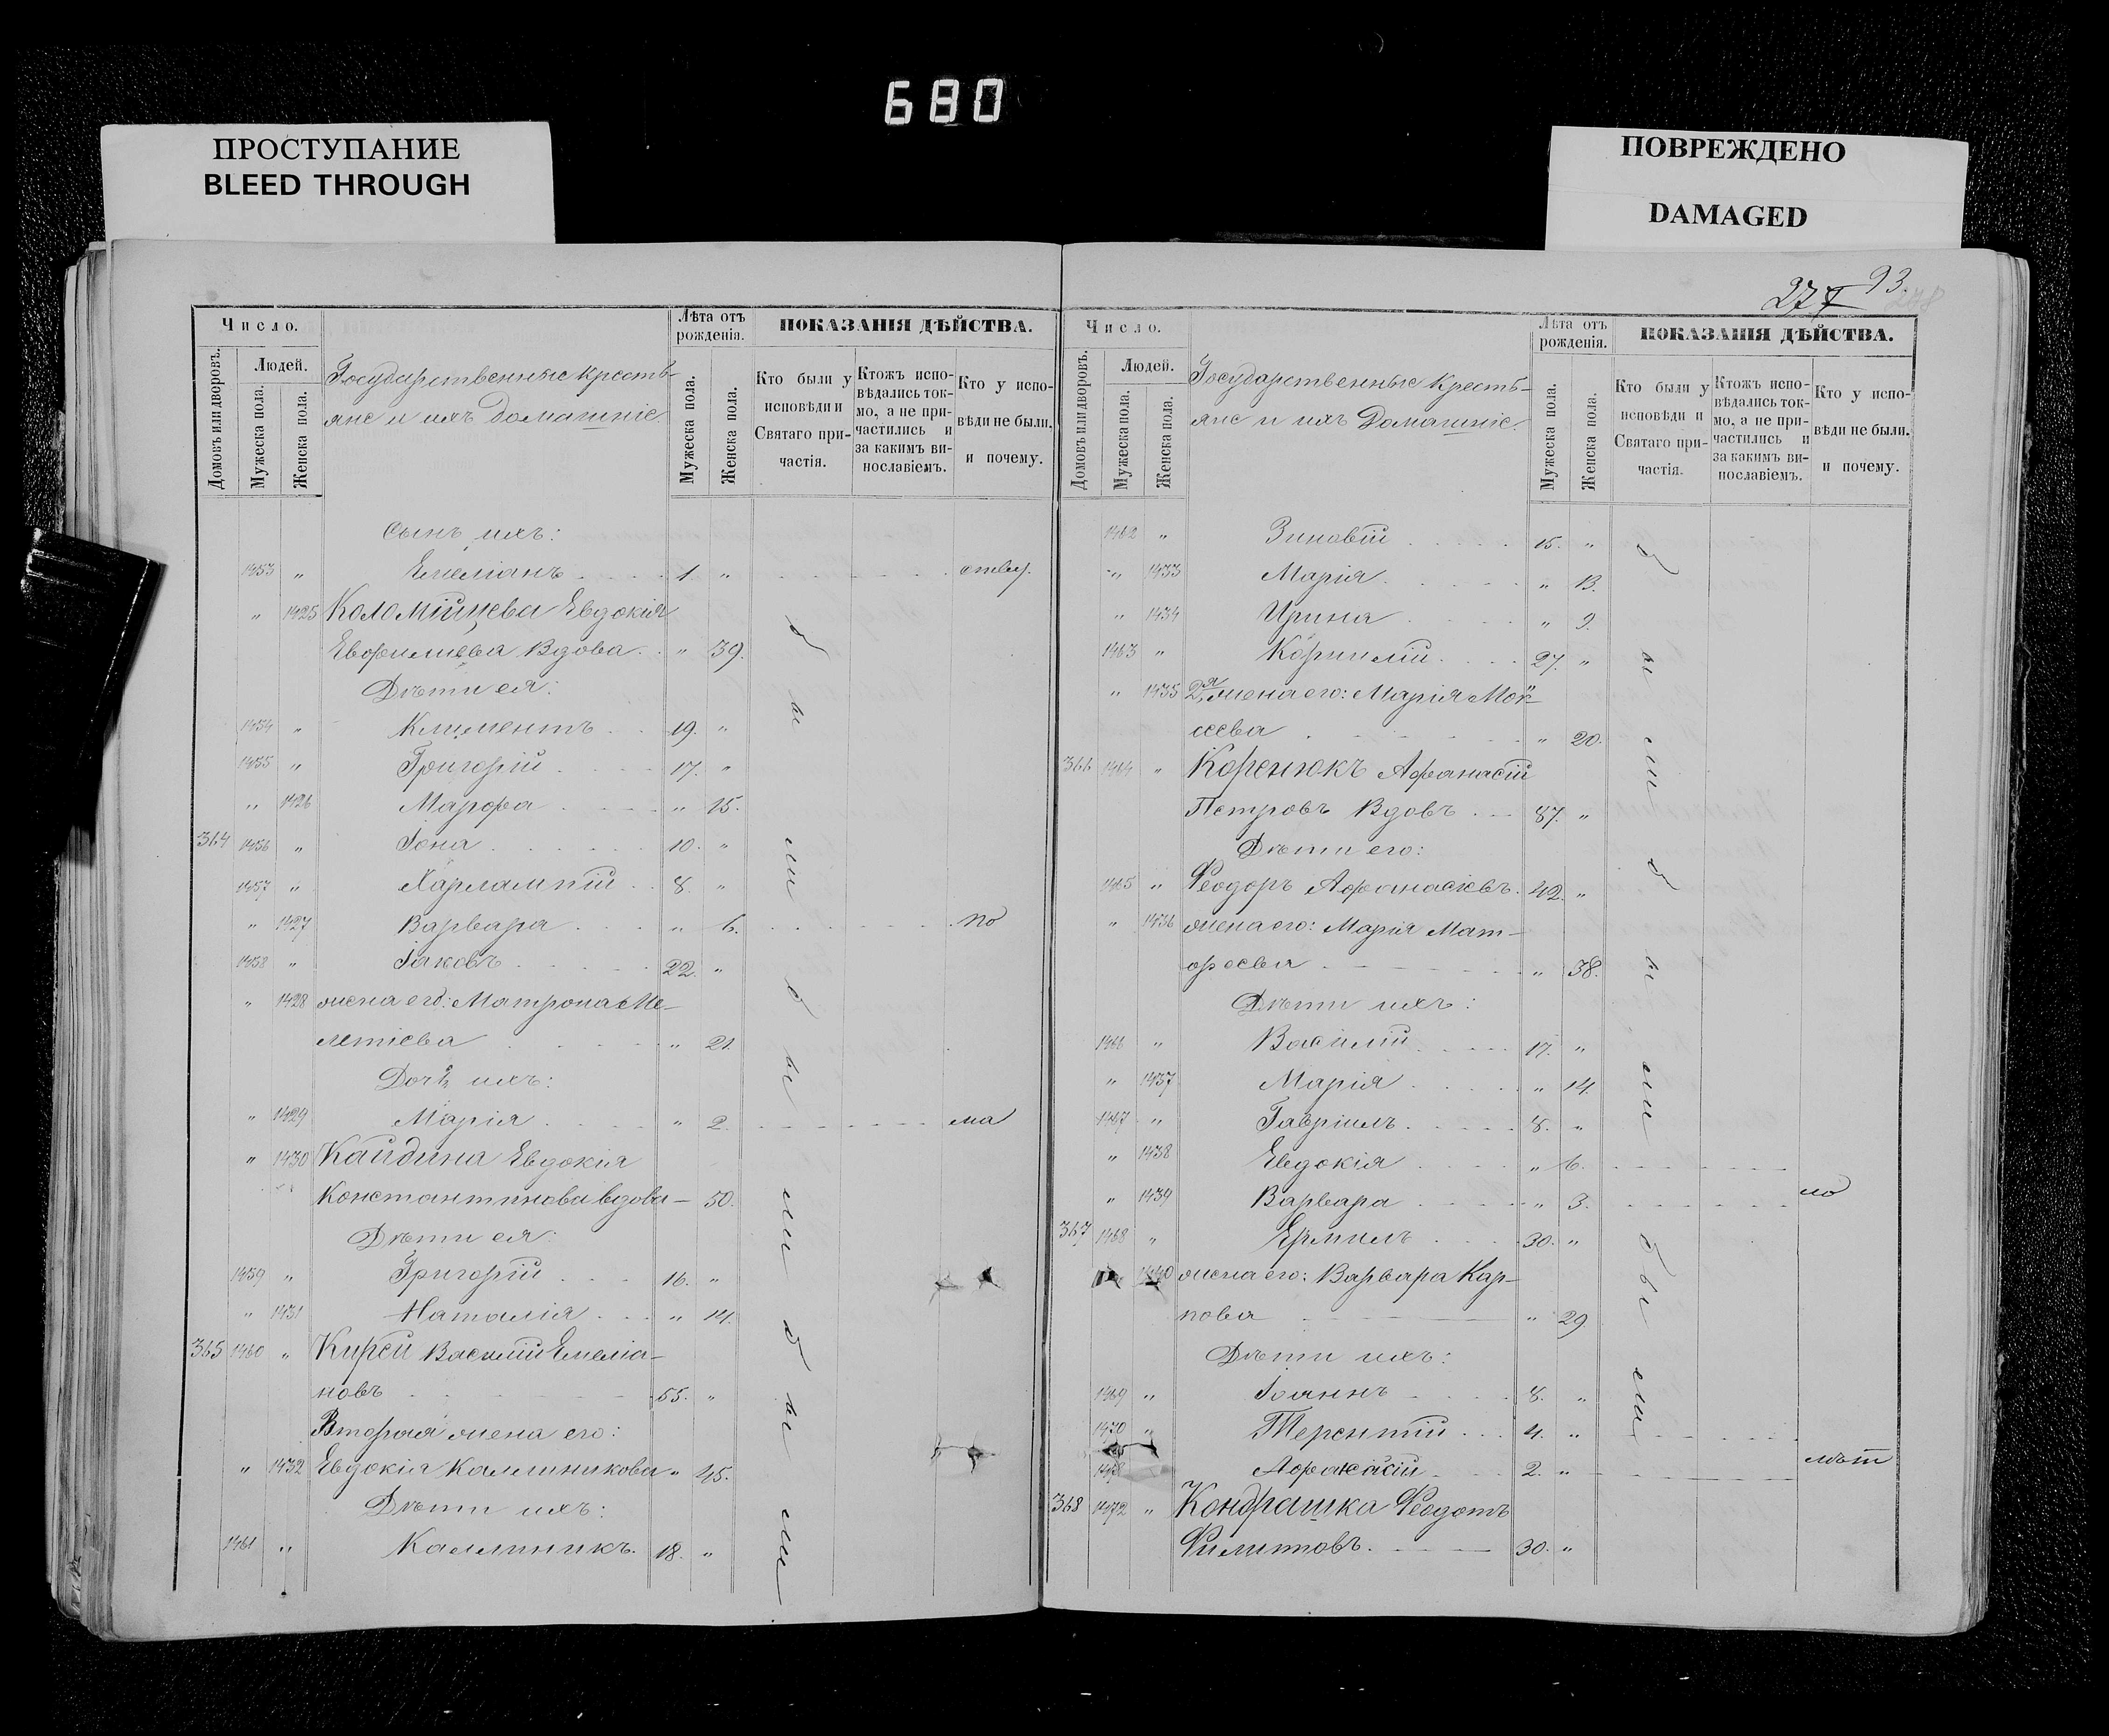 680
ПРОСТУПАНИЕ
BLEED THROUGH
ПОВРЕЖДЕНО
DAMAGED
Число.
Домовъ или дворовъ.
Людей.
Мужеска пола.
Женска пола.
Государственные кресть-
яне и ихъ домашніе.
Лѣта отъ рожденія.
Мужеска пола.
Женска пола.
ПОКАЗАНІЯ ДѢЙСТВА.
Кто были у исповѣди и Святаго причастія.
Ктожъ исповѣдались токмо, а не причастились и за какимъ винославіемъ.
Кто у исповѣди не были, и почему.
Сынъ ихъ:
1453 „ Емеліанъ 1. „
„ 1425 Коломійцева Евдокія
Евфиміева Вдова. „ 39.
Дѣти ея:
1454 „ Климентъ 19. „
1455 „ Григорій 17. „
„ 1426 Марфа „ 15.
364 1456 „ Іона 10. „
1457 „ Харлампій 8. „
„ 1427 Варвара „ 6. по
1458 „ Іаковъ 22. „
„ 1428 жена его: Матрона Ме-
летіева „ 21.
Дочь ихъ:
„ 1429 Марія „ 2. ма
„ 1430 Кайдина Евдокія
Константинова вдова – 50.
Дѣти ея:
1459 „ Григорій 16. „
„ 1431 Наталія „ 14.
365 1460 „ Кирей Василій Емеліа-
новъ 55. „
Вторая жена его:
„ 1432 Евдокія Каллиникова „ 45.
Дѣти ихъ:
1461 „ Каллиникъ. 18. „
были были были
277 93.
278
Число.
Домовъ или дворовъ.
Людей.
Мужеска пола.
Женска пола.
Государственные кресть-
яне и ихъ домашніе.
Лѣта отъ рожденія.
Мужеска пола.
Женска пола.
ПОКАЗАНІЯ ДѢЙСТВА.
Кто были у исповѣди и Святаго причастія.
Ктожъ исповѣдались токмо, а не причастились и за какимъ винославіемъ.
Кто у исповѣди не были, и почему.
1462 „ Зиновій 15. „
„ 1433 Марія „ 13.
„ 1434 Ирина „ 9.
1463 „ Корнилій 27. „
„ 1435 2я жена его: Марія Мои-
сеева „ 20.
366 1464 „ Коренюкъ Афанасій
Петровъ Вдовъ 87. „
Дѣти его:
1465 „ Ѳеодоръ Афанасіевъ. 42. „
„ 1436 жена его: Марія Мат-
феева „ 38.
Дѣти ихъ:
1466 „ Василій 17. „
„ 1437 Марія „ 14.
1467 „ Гавріилъ 8. „
„ 1438 Евдокія „ 6.
„ 1439 Варвара „ 3. ло
367 1468 „ Ермилъ 30. „
1440 жена его: Варвара Кар-
пова „ 29.
Дѣти ихъ:
1469 „ Іоаннъ 8. „
1470 „ Терентій 4. „
Афанасій 2. „ лѣт
368 1472 „ Кондрашка Ѳеодотъ
Филипповъ. 30. „
были были были